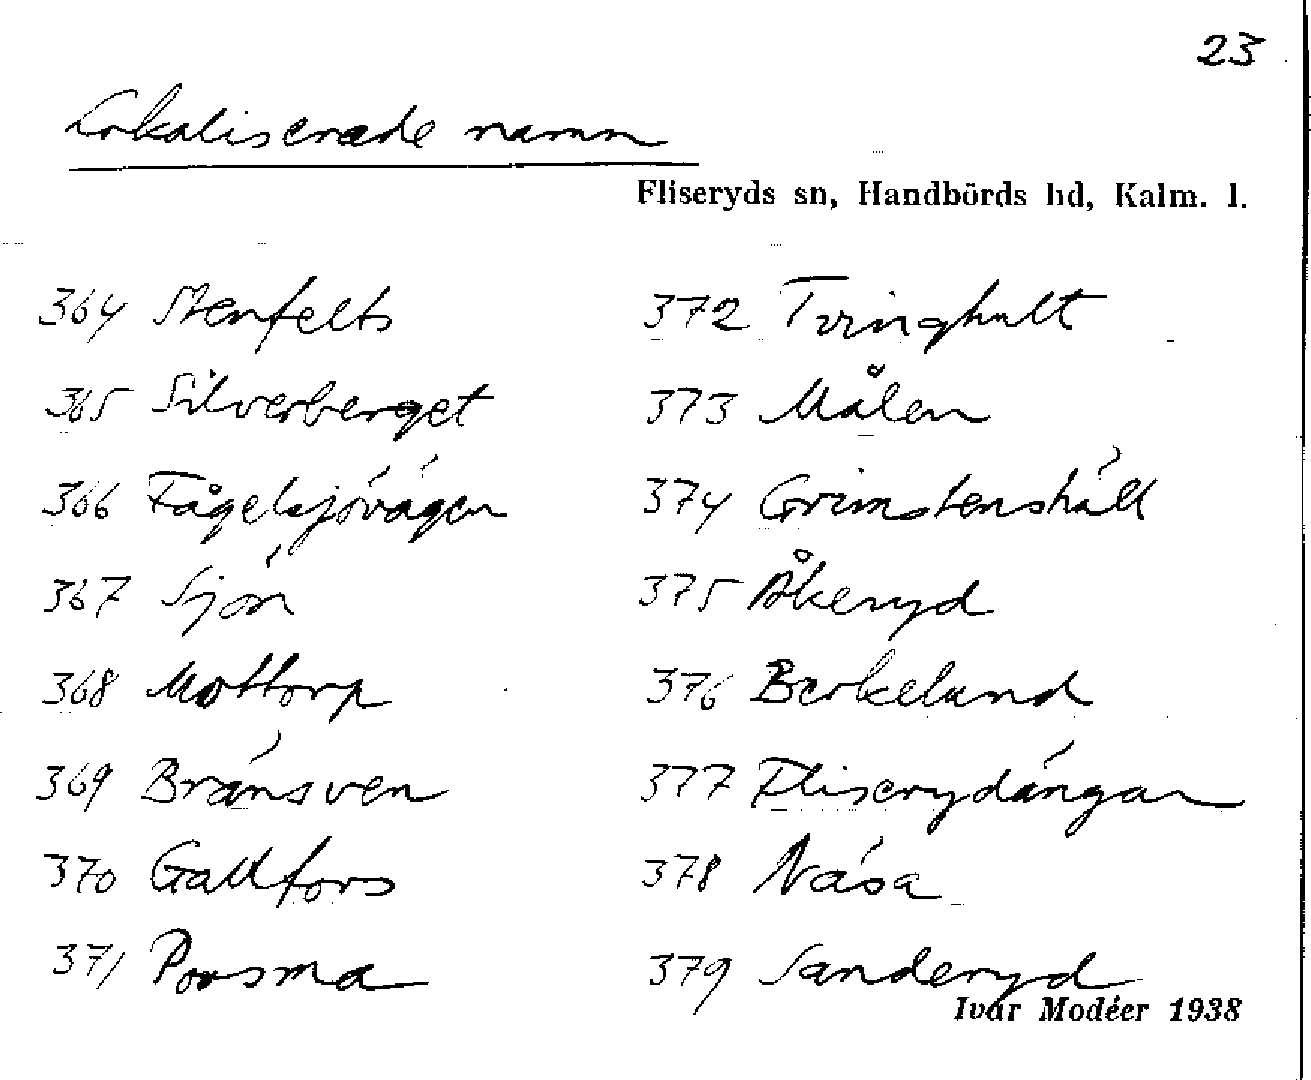 23
Lokaliserade namn
Fliseryds sn, Handbörds hd, Kalm. l.
364 Stenfelts
365 Silverberget
366 Fågelsjövägen
367 Sjön
368 Mottorp
369 Bränsven
370 Gallfors
371 Porsma
372 Tvinghult
373 Målen
374 Grimstenshäll
375 Åkeryd
376 Berkelund
377 Fliserydängar
378 Näsa
379 Sanderyd
Ivar Modéer 1938